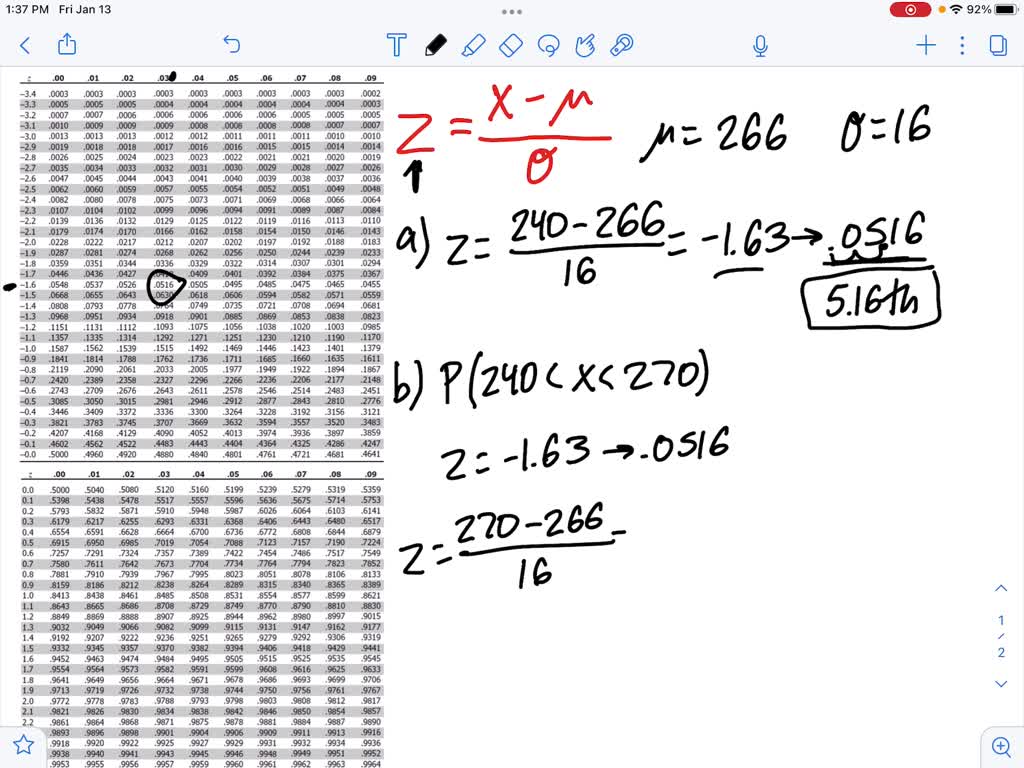 1:37 PM Fri Jan 13
92%
z .00 .01 .02 .03 .04 .05 .06 .07 .08 .09
−3.4 .0003 .0003 .0003 .0003 .0003 .0003 .0003 .0003 .0003 .0002
−3.3 .0005 .0005 .0005 .0004 .0004 .0004 .0004 .0004 .0004 .0003
−3.2 .0007 .0007 .0006 .0006 .0006 .0006 .0006 .0005 .0005 .0005
−3.1 .0010 .0009 .0009 .0009 .0008 .0008 .0008 .0008 .0007 .0007
−3.0 .0013 .0013 .0013 .0012 .0012 .0011 .0011 .0011 .0010 .0010
−2.9 .0019 .0018 .0018 .0017 .0016 .0016 .0015 .0015 .0014 .0014
−2.8 .0026 .0025 .0024 .0023 .0023 .0022 .0021 .0021 .0020 .0019
−2.7 .0035 .0034 .0033 .0032 .0031 .0030 .0029 .0028 .0027 .0026
−2.6 .0047 .0045 .0044 .0043 .0041 .0040 .0039 .0038 .0037 .0036
−2.5 .0062 .0060 .0059 .0057 .0055 .0054 .0052 .0051 .0049 .0048
−2.4 .0082 .0080 .0078 .0075 .0073 .0071 .0069 .0068 .0066 .0064
−2.3 .0107 .0104 .0102 .0099 .0096 .0094 .0091 .0089 .0087 .0084
−2.2 .0139 .0136 .0132 .0129 .0125 .0122 .0119 .0116 .0113 .0110
−2.1 .0179 .0174 .0170 .0166 .0162 .0158 .0154 .0150 .0146 .0143
−2.0 .0228 .0222 .0217 .0212 .0207 .0202 .0197 .0192 .0188 .0183
−1.9 .0287 .0281 .0274 .0268 .0262 .0256 .0250 .0244 .0239 .0233
−1.8 .0359 .0351 .0344 .0336 .0329 .0322 .0314 .0307 .0301 .0294
−1.7 .0446 .0436 .0427 .0409 .0401 .0392 .0384 .0375 .0367
−1.6 .0548 .0537 .0526 .0516 .0505 .0495 .0485 .0475 .0465 .0455
−1.5 .0668 .0655 .0643 .0630 .0618 .0606 .0594 .0582 .0571 .0559
−1.4 .0808 .0793 .0778 .0764 .0749 .0735 .0721 .0708 .0694 .0681
−1.3 .0968 .0951 .0934 .0918 .0901 .0885 .0869 .0853 .0838 .0823
−1.2 .1151 .1131 .1112 .1093 .1075 .1056 .1038 .1020 .1003 .0985
−1.1 .1357 .1335 .1314 .1292 .1271 .1251 .1230 .1210 .1190 .1170
−1.0 .1587 .1562 .1539 .1515 .1492 .1469 .1446 .1423 .1401 .1379
−0.9 .1841 .1814 .1788 .1762 .1736 .1711 .1685 .1660 .1635 .1611
−0.8 .2119 .2090 .2061 .2033 .2005 .1977 .1949 .1922 .1894 .1867
−0.7 .2420 .2389 .2358 .2327 .2296 .2266 .2236 .2206 .2177 .2148
−0.6 .2743 .2709 .2676 .2643 .2611 .2578 .2546 .2514 .2483 .2451
−0.5 .3085 .3050 .3015 .2981 .2946 .2912 .2877 .2843 .2810 .2776
−0.4 .3446 .3409 .3372 .3336 .3300 .3264 .3228 .3192 .3156 .3121
−0.3 .3821 .3783 .3745 .3707 .3669 .3632 .3594 .3557 .3520 .3483
−0.2 .4207 .4168 .4129 .4090 .4052 .4013 .3974 .3936 .3897 .3859
−0.1 .4602 .4562 .4522 .4483 .4443 .4404 .4364 .4325 .4286 .4247
−0.0 .5000 .4960 .4920 .4880 .4840 .4801 .4761 .4721 .4681 .4641
z .00 .01 .02 .03 .04 .05 .06 .07 .08 .09
0.0 .5000 .5040 .5080 .5120 .5160 .5199 .5239 .5279 .5319 .5359
0.1 .5398 .5438 .5478 .5517 .5557 .5596 .5636 .5675 .5714 .5753
0.2 .5793 .5832 .5871 .5910 .5948 .5987 .6026 .6064 .6103 .6141
0.3 .6179 .6217 .6255 .6293 .6331 .6368 .6406 .6443 .6480 .6517
0.4 .6554 .6591 .6628 .6664 .6700 .6736 .6772 .6808 .6844 .6879
0.5 .6915 .6950 .6985 .7019 .7054 .7088 .7123 .7157 .7190 .7224
0.6 .7257 .7291 .7324 .7357 .7389 .7422 .7454 .7486 .7517 .7549
0.7 .7580 .7611 .7642 .7673 .7704 .7734 .7764 .7794 .7823 .7852
0.8 .7881 .7910 .7939 .7967 .7995 .8023 .8051 .8078 .8106 .8133
0.9 .8159 .8186 .8212 .8238 .8264 .8289 .8315 .8340 .8365 .8389
1.0 .8413 .8438 .8461 .8485 .8508 .8531 .8554 .8577 .8599 .8621
1.1 .8643 .8665 .8686 .8708 .8729 .8749 .8770 .8790 .8810 .8830
1.2 .8849 .8869 .8888 .8907 .8925 .8944 .8962 .8980 .8997 .9015
1.3 .9032 .9049 .9066 .9082 .9099 .9115 .9131 .9147 .9162 .9177
1.4 .9192 .9207 .9222 .9236 .9251 .9265 .9279 .9292 .9306 .9319
1.5 .9332 .9345 .9357 .9370 .9382 .9394 .9406 .9418 .9429 .9441
1.6 .9452 .9463 .9474 .9484 .9495 .9505 .9515 .9525 .9535 .9545
1.7 .9554 .9564 .9573 .9582 .9591 .9599 .9608 .9616 .9625 .9633
1.8 .9641 .9649 .9656 .9664 .9671 .9678 .9686 .9693 .9699 .9706
1.9 .9713 .9719 .9726 .9732 .9738 .9744 .9750 .9756 .9761 .9767
2.0 .9772 .9778 .9783 .9788 .9793 .9798 .9803 .9808 .9812 .9817
2.1 .9821 .9826 .9830 .9834 .9838 .9842 .9846 .9850 .9854 .9857
2.2 .9861 .9864 .9868 .9871 .9875 .9878 .9881 .9884 .9887 .9890
.9893 .9896 .9898 .9901 .9904 .9906 .9909 .9911 .9913 .9916
.9918 .9920 .9922 .9925 .9927 .9929 .9931 .9932 .9934 .9936
.9938 .9940 .9941 .9943 .9945 .9946 .9948 .9949 .9951 .9952
.9953 .9955 .9956 .9957 .9959 .9960 .9961 .9962 .9963 .9964
z = x - μ / σ μ = 266 σ = 16
a) z = 240 - 266 / 16 = -1.63 → .0516
5.16th
b) P(240 < x < 270)
z = -1.63 → .0516
z = 270 - 266 / 16 =
1
/
2